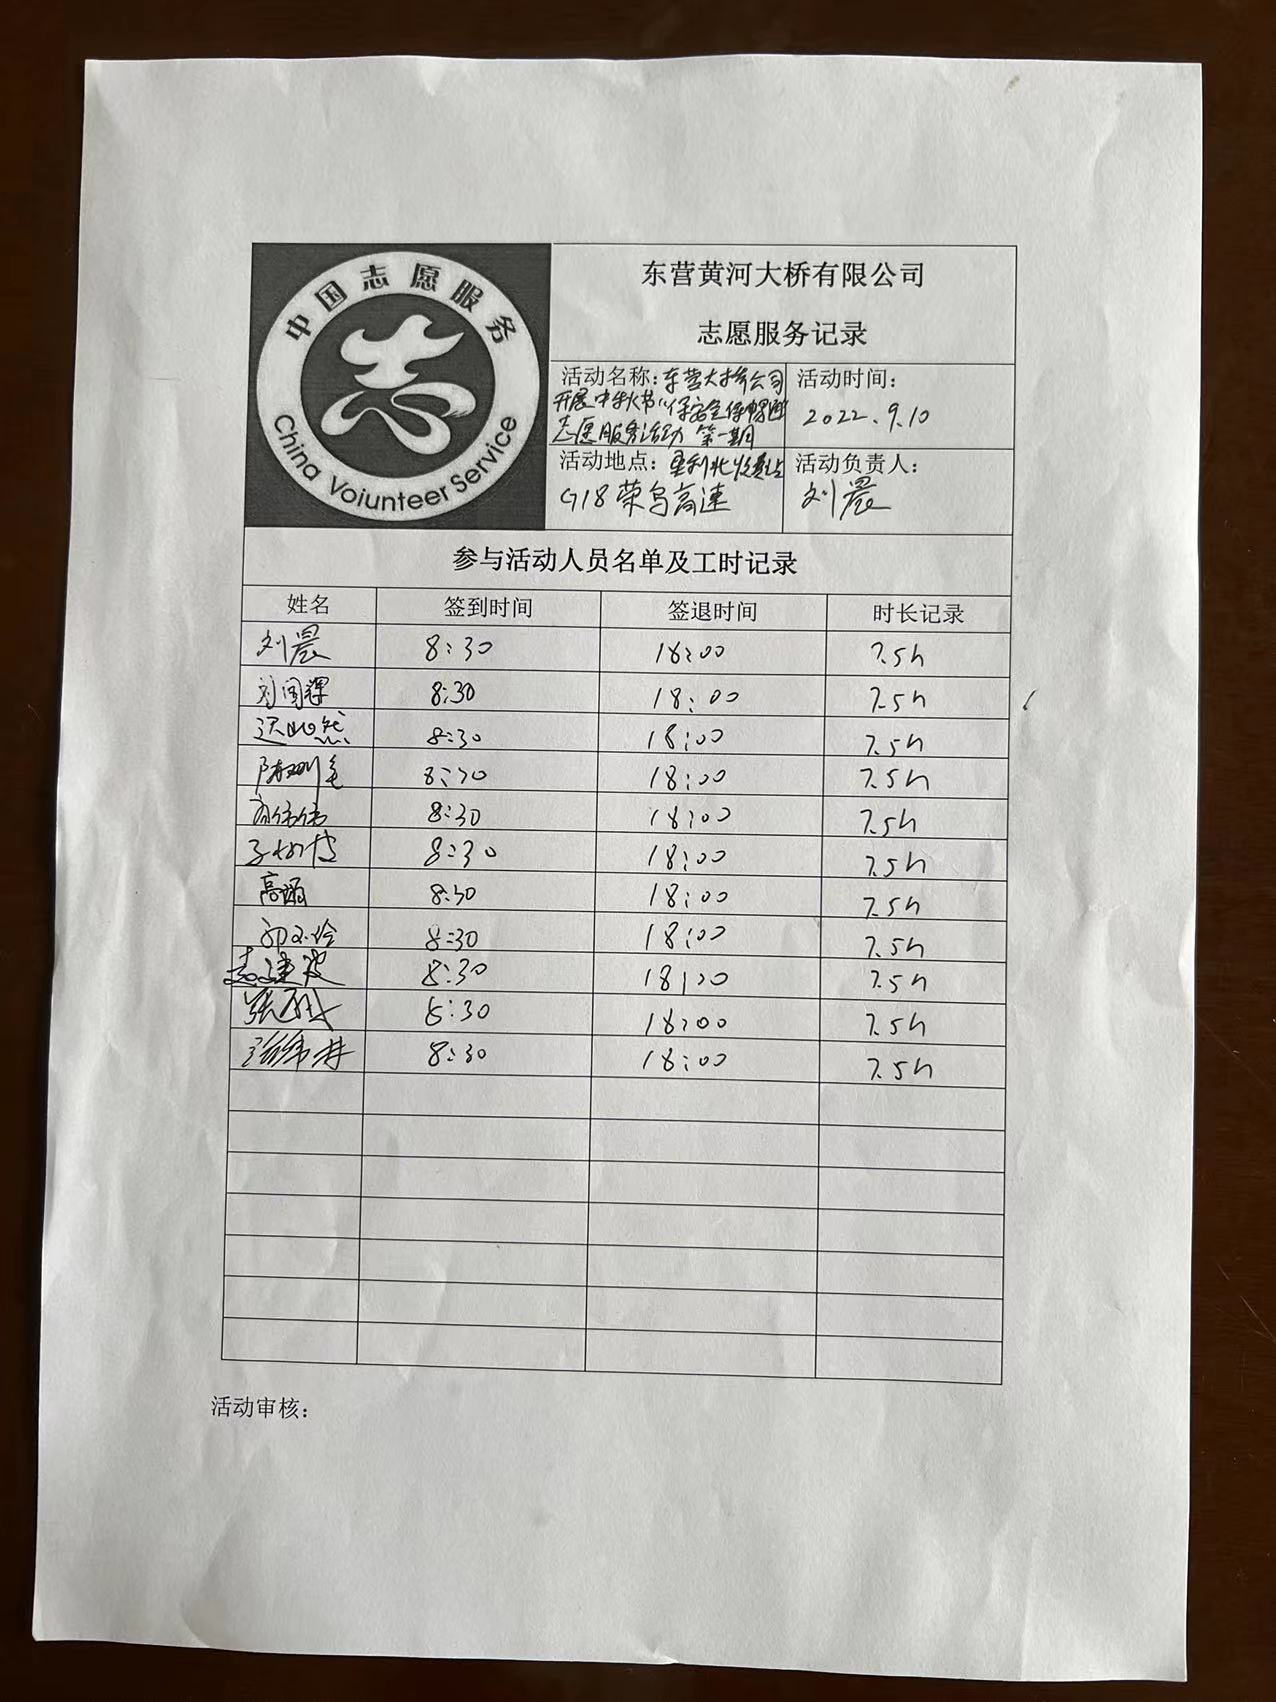 中国志愿服务
志
China Voiunteer Service
东营黄河大桥有限公司
志愿服务记录
活动名称：东营大桥公司
开展中秋节“保安全保畅通
志愿服务活动 第一期
活动时间：
2022.9.10
活动地点：垦利北收费站
G18荣乌高速
活动负责人：
刘晨
参与活动人员名单及工时记录
姓名 签到时间 签退时间 时长记录
刘晨 8:30 18:00 7.5h
刘国辉 8:30 18:00 7.5h
8:30 18:00 7.5h
8:30 18:00 7.5h
8:30 18:00 7.5h
8:30 18:00 7.5h
高 8:30 18:00 7.5h
8:30 18:00 7.5h
建波 8:30 18:00 7.5h
张 8:30 18:00 7.5h
8:30 18:00 7.5h
活动审核：